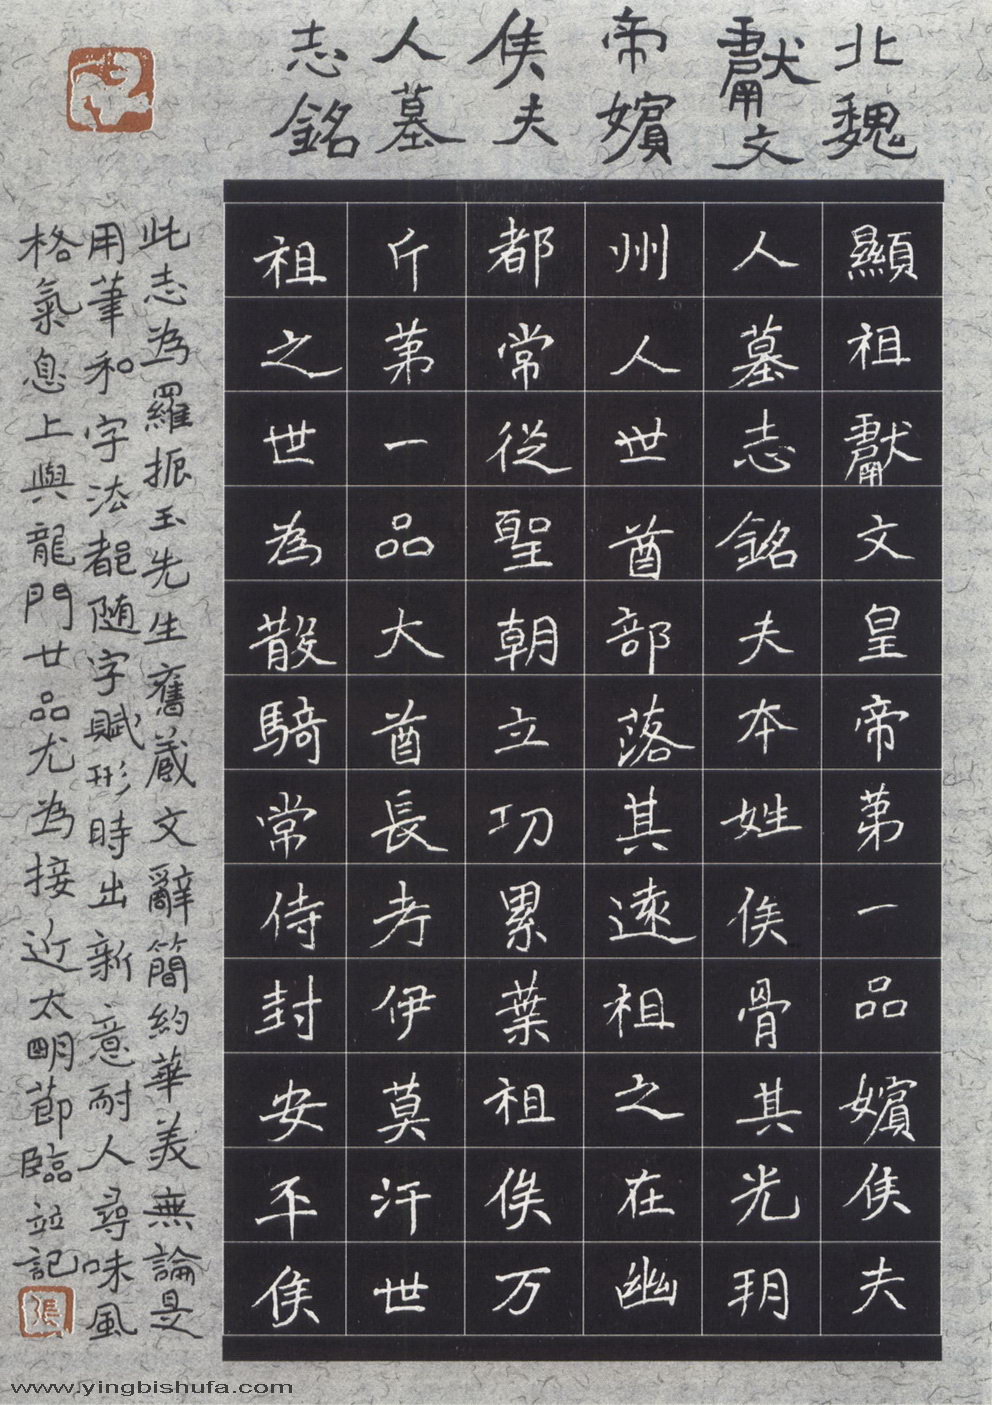 北魏
獻文
帝嬪
侯夫
人墓
志銘
顯祖獻文皇帝第一品嬪侯夫
人墓志銘夫本姓侯骨其光玥
州人世酋部落其遠祖之在幽
都常從聖朝立功累葉祖俟万
斤第一品大酋長考伊莫汗世
祖之世為散騎常侍封安平侯
此志為羅振玉先生舊藏文辭簡約華美無論是
用筆和字法都随字賦形時出新意耐人尋味風
格氣息上與龍門廿品尤為接近太明節臨並記
張
www.yingbishufa.com